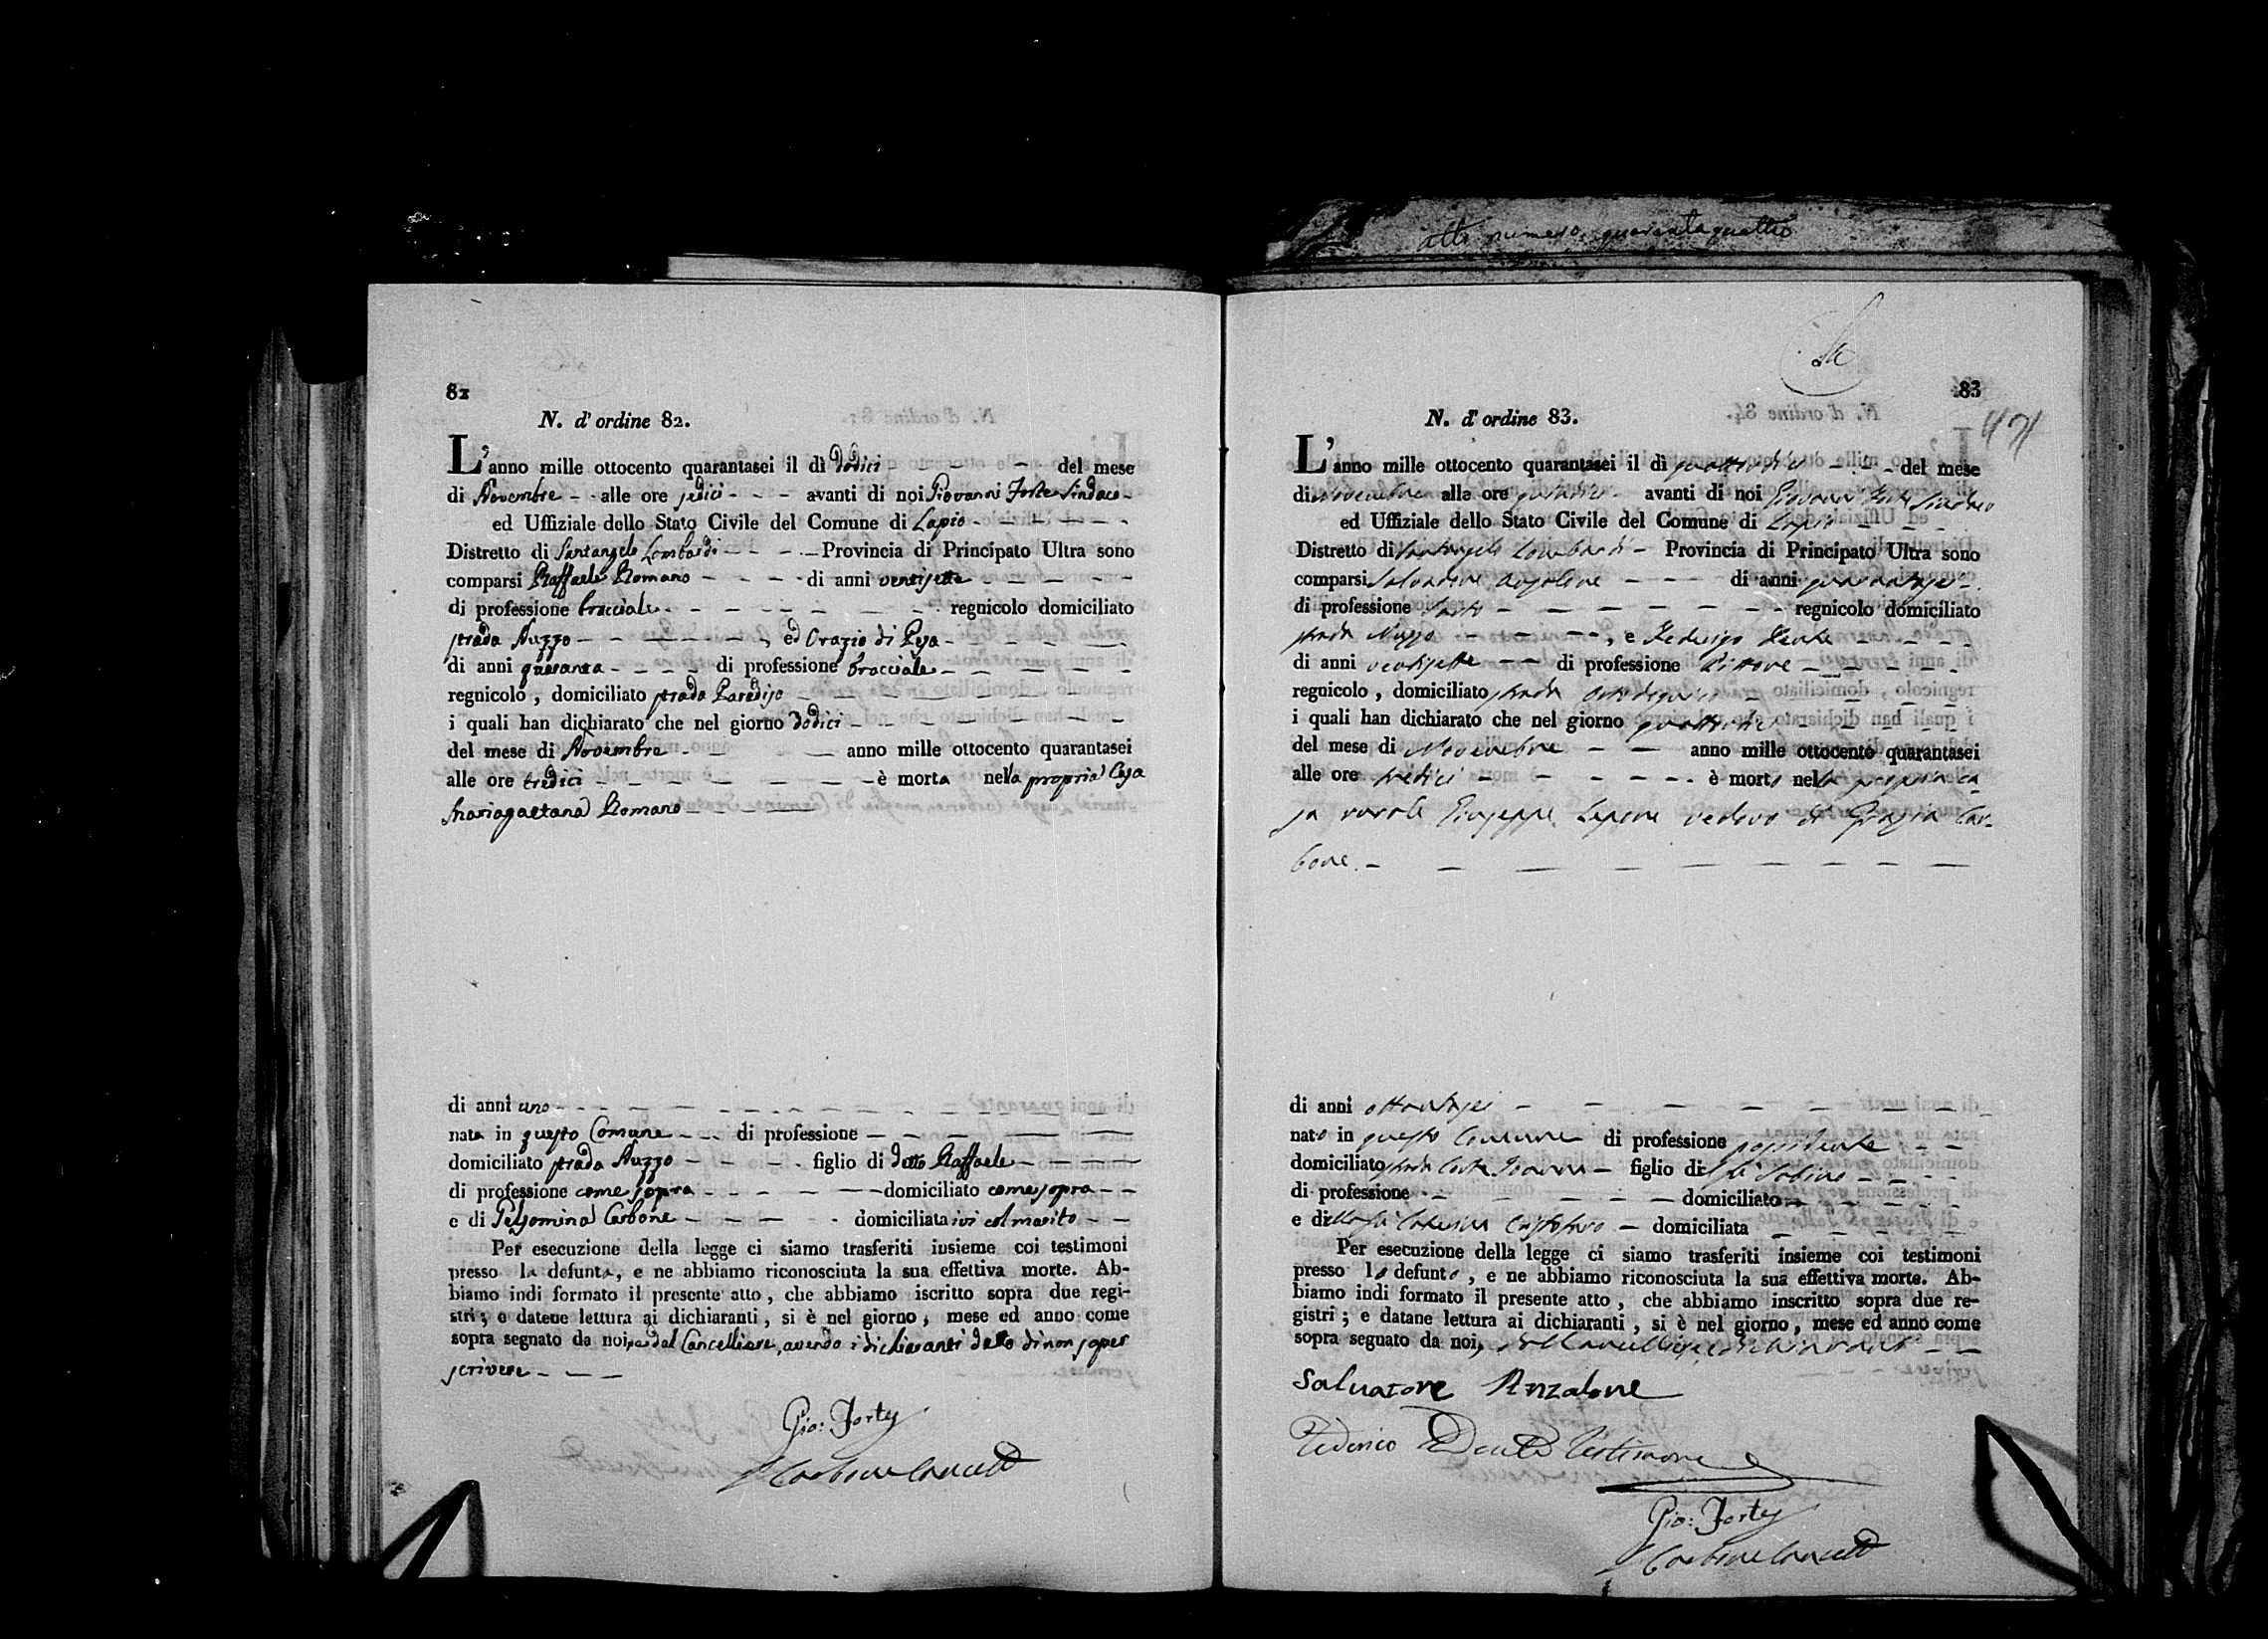 atto numero quarantaquattro
82
N. d' ordine 82.
L'anno mille ottocento quarantasei il dì dodici del mese
di Novembre alle ore sedici avanti di noi Giovanni Forte Sindaco
ed Uffiziale dello Stato Civile del Comune di Lapio
Distretto di Santangelo Lombardi Provincia di Principato Ultra sono
comparsi Raffaele Romano di anni ventisette
di professione bracciale regnicolo domiciliato
strada Nuzzo , ed Orazio di Pesa
di anni quaranta di professione bracciale
regnicolo , domiciliato strada Paradiso
i quali han dichiarato che nel giorno dodici
del mese di Novembre anno mille ottocento quarantasei
alle ore tredici è morta nella propria Casa
Mariagaetana Romano
di anni uno
nata in questo Comune di professione
domiciliato strada Nuzzo figlio di detto Raffaele
di professione come sopra domiciliato come sopra
e di Pelsomina Carbone domiciliata ivi col marito
Per esecuzione della legge ci siamo trasferiti insieme coi testimoni
presso la defunta, e ne abbiamo riconosciuta la sua effettiva morte. Ab-
biamo indi formato il presente atto , che abbiamo iscritto sopra due regi-
stri ; e datene lettura ai dichiaranti , si è nel giorno , mese ed anno come
sopra segnato da noi, e dal Cancelliere, avendo i dichiaranti detto di non saper
scrivere
Gio: Forte
Carbone Cancell
83
N. d' ordine 83.
L'anno mille ottocento quarantasei il dì quattordici del mese
di Novembre alle ore avanti di noi Giovanni Forte Sindaco
ed Uffiziale dello Stato Civile del Comune di Lapio
Distretto di Santangelo Lombardi Provincia di Principato Ultra sono
comparsi Salvatore Anzalone di anni quarantasei
di professione sarto regnicolo domiciliato
strada Nuzzo , e Federigo Dente
di anni ventisette di professione Pittore
regnicolo , domiciliato strada
i quali han dichiarato che nel giorno quattordici
del mese di Novembre anno mille ottocento quarantasei
alle ore tredici è morto nella propria ca-
sa Giuseppe Lepore vedovo di Grazia Car-
bone.
di anni ottantasei
nato in questo Comune di professione possidente
domiciliato strada figlio di fu Sabino
di professione domiciliato
e di della fu Caterina domiciliata
Per esecuzione della legge ci siamo trasferiti insieme coi testimoni
presso lo defunto , e ne abbiamo riconosciuta la sua effettiva morte. Ab-
biamo indi formato il presente atto , che abbiamo inscritto sopra due re-
gistri ; e datane lettura ai dichiaranti , si è nel giorno , mese ed anno come
sopra segnato da noi, dal Cancelliere, e dichiaranti
Salvatore Anzalone
Federico Dente Testimone
Gio: Forte
Carbone Cancell